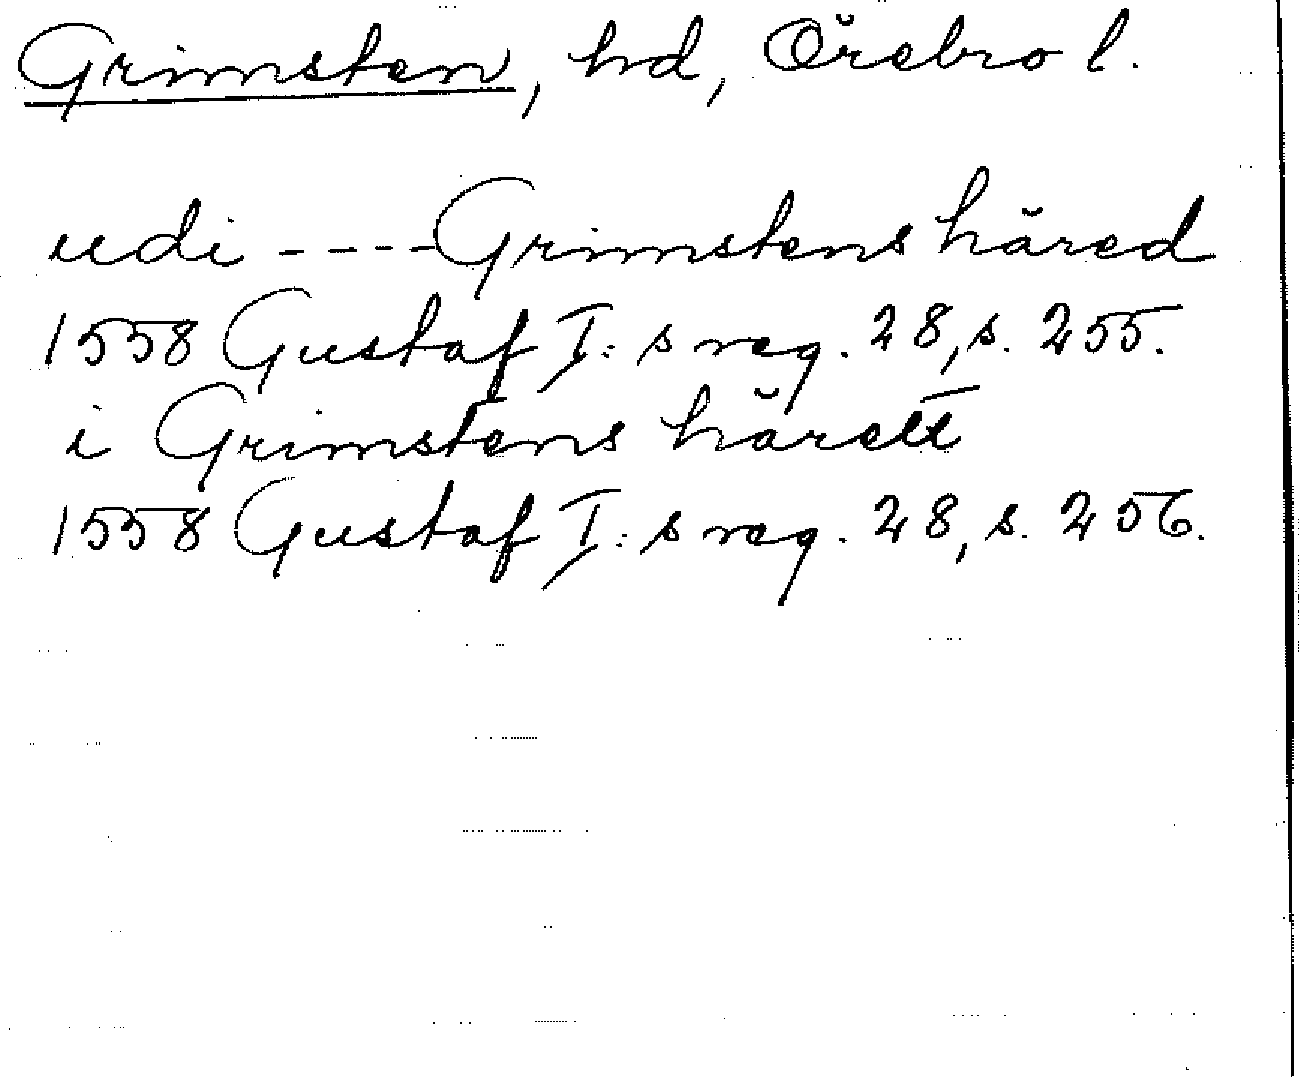 Grimsten, hd, Örebro l.
udi ----Grimstens härad
1558 Gustaf I:s reg. 28, s. 255.
i Grimstens härett
1558 Gustaf I:s reg. 28, s. 256.